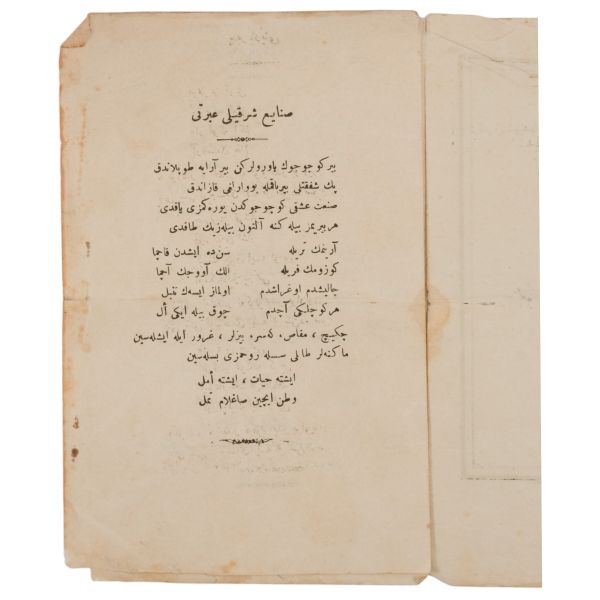 صنایع شرقیلی عبرتی
بیر کوجوجوك یاورولرکن بیر آرایه طوپلاندق
پك شفقتلی بیر باقمله یووارلغی قازاندق
صنعت عشقی کوچوجوکدن یوره‌کمزی یاقدی
هر بیریمز بیله کنه آلتون بیله‌زیك طاقدی
آرینمك تریله
سن ده ایشدن قاچما
کوزومك فریله
الك آووجك آچما
چالیشدم اوغراشدم
اولماز ایسه‌ك تنبل
هر کوچلکی آچدم
چوق بیله ایکی أل
چکیچ ، مقاص که‌سر، بیزلر ، غرور ایله ایشله‌سین
ماکنه‌لر طاتلی سسله روحمزی بسله‌سین
ایشته حیات ، ایشته أمل
وطن ایچین صاغلام تمل